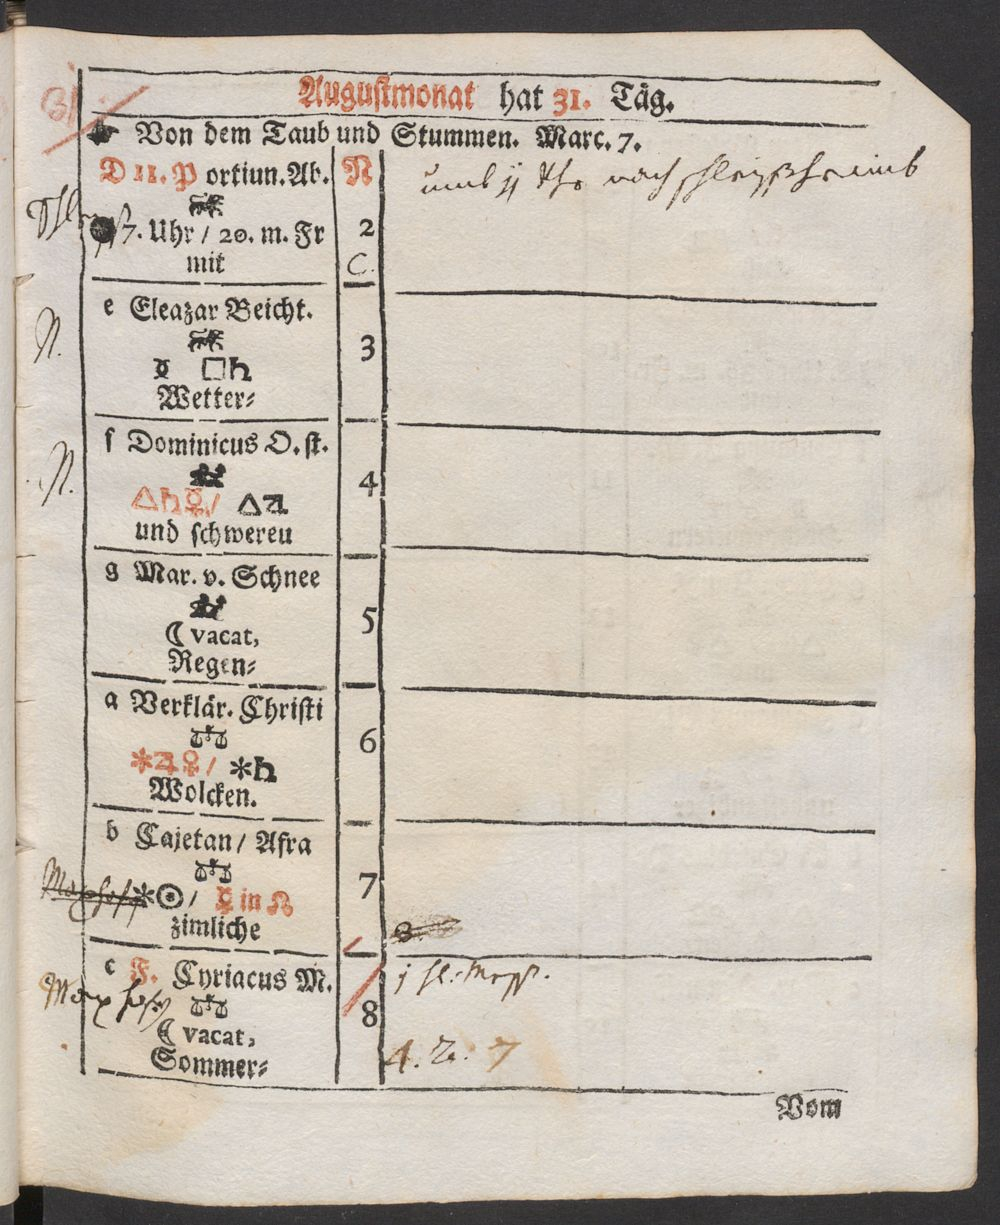 Augustmonat hat 31. Täg.
Von dem Taub und Stummen. Marc. 7.
D 11. Portiun. Ab. N
7. Uhr / 20. m. Fr 2
mit C.
e Eleazar Beicht.
3
☿ □♄
Wetter⸗
N.
f Dominicus O. st.
4
△♄☿/ △♃
und schweren
N.
g Mar. v. Schnee
5
☾ vacat,
Regen⸗
a Verklär. Christi
6
✱♃♀/ ✱♄
Wolcken.
b Cajetan / Afra
7
✱☉/ ☿ in ♌
zimliche
c F. Cyriacus M.
j hl. Mess.
8
☾ vacat,
Sommer⸗
Vom